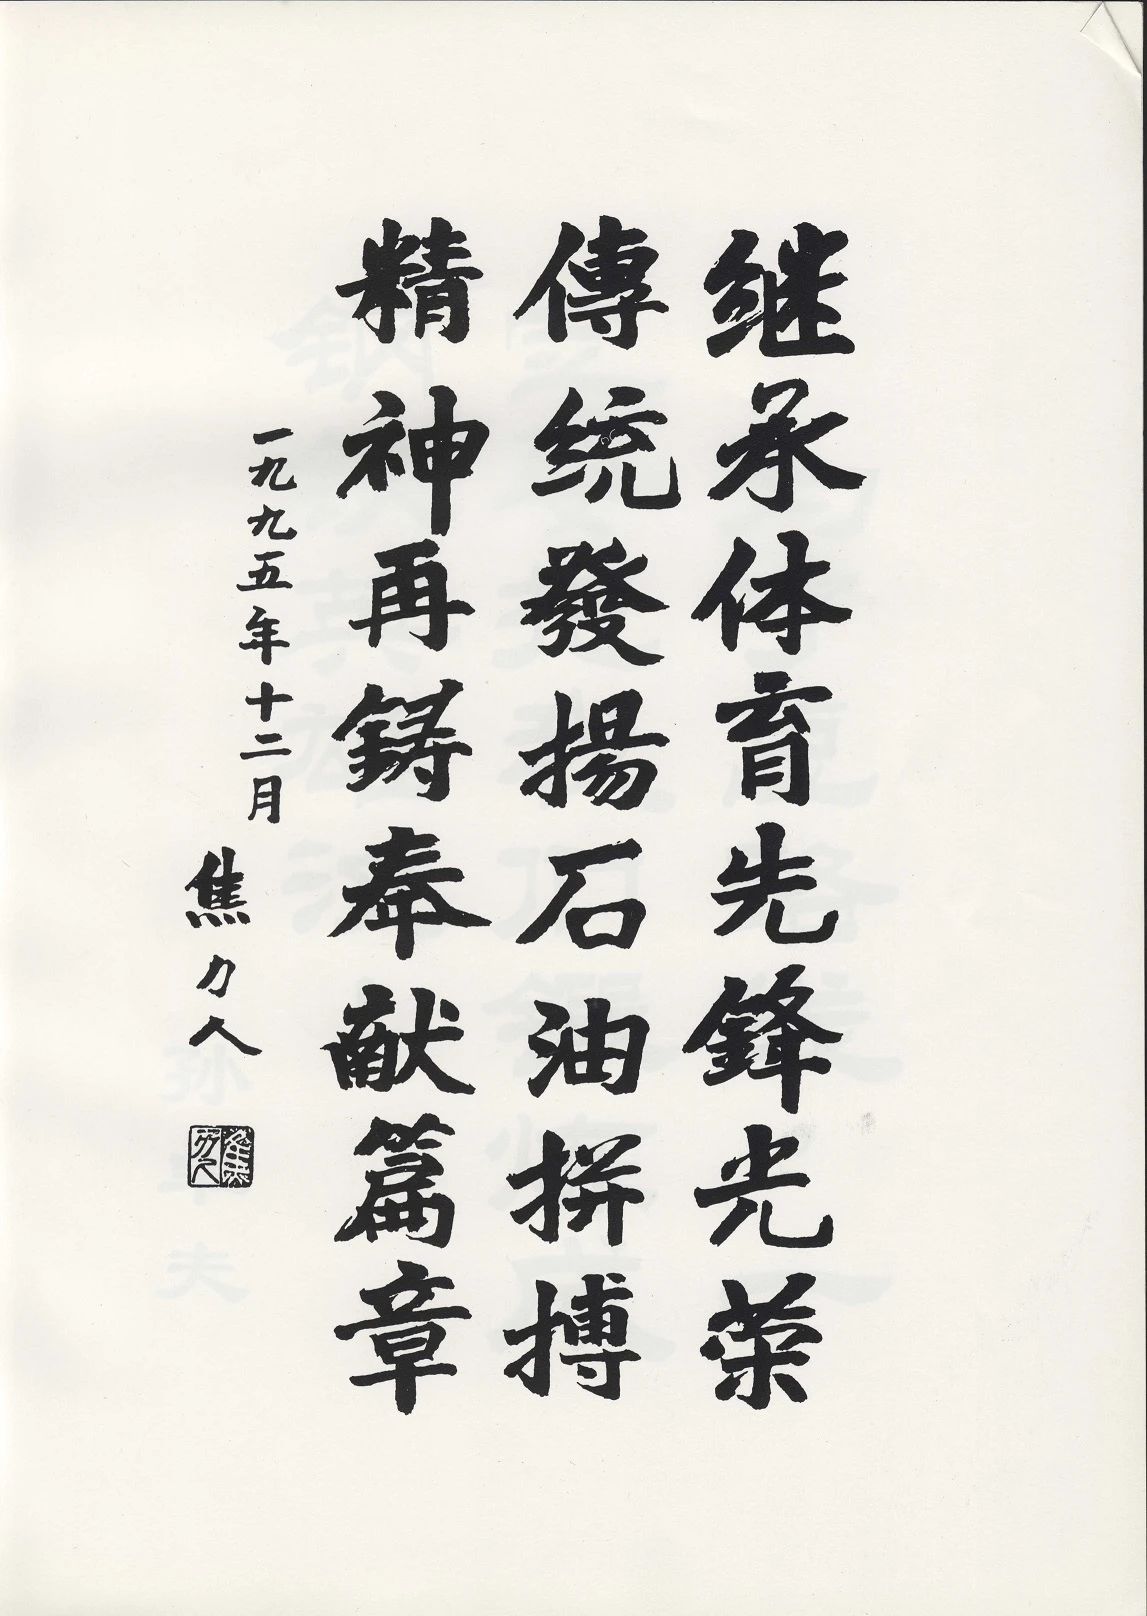 继承体育先鋒光荣
傳統發揚石油拼搏
精神再鋳奉献篇章
一九九五年十二月
焦力人
焦力人